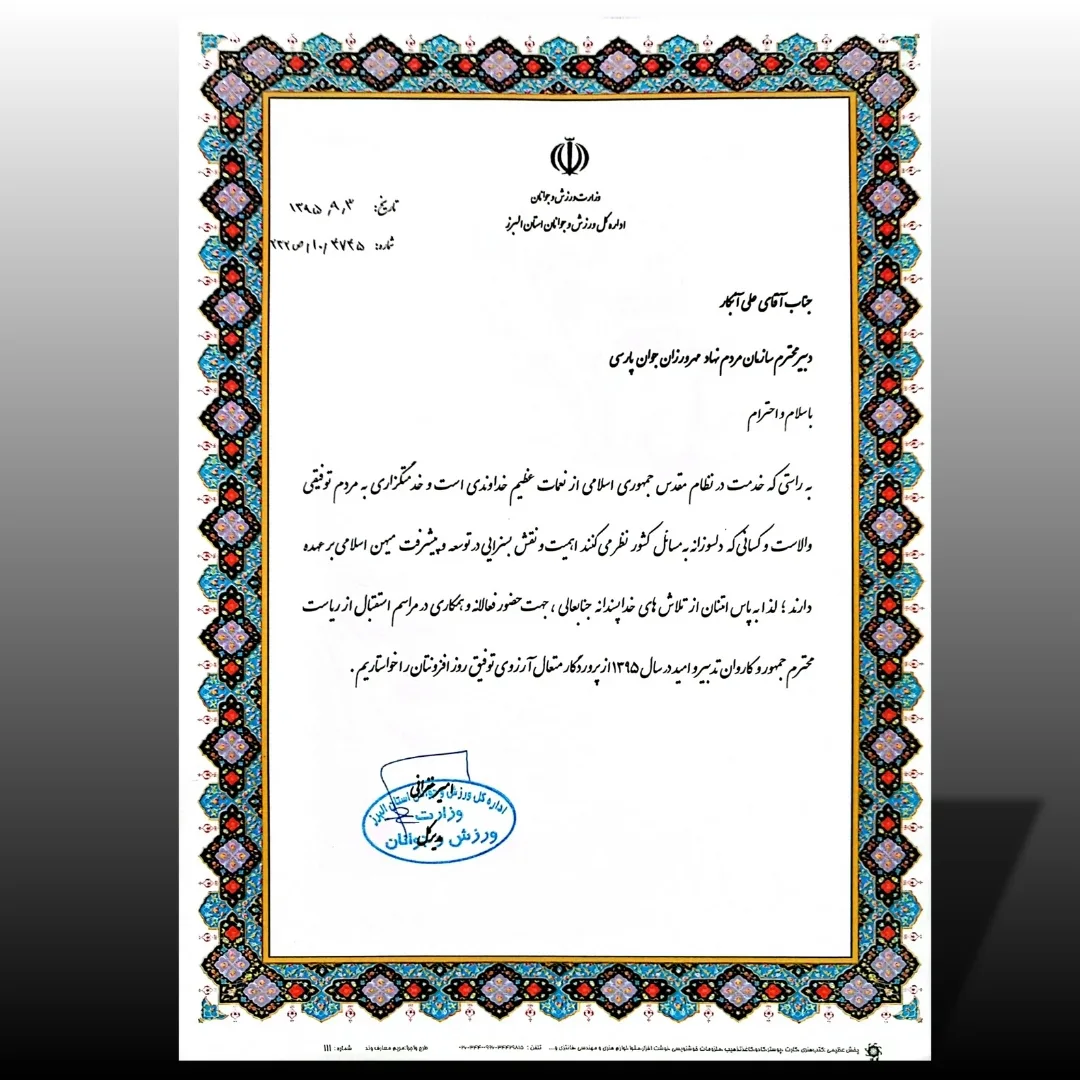 وزارت ورزش و جوانان
اداره کل ورزش و جوانان استان البرز
تاریخ: ۱۳۹۵٫۹٫۳
شماره: ۴۷۴۵/۱۰/ص۲۲۲
جناب آقای علی آبکار
دبیر محترم سازمان مردم نهاد مهرورزان جوان پارسی
با سلام و احترام
به راستی که خدمت در نظام مقدس جمهوری اسلامی از نعمات عظیم خداوندی است و خدمتگزاری به مردم توفیقی
والاست و کسانی که دلسوزانه به مسائل کشور نظر می کنند اهمیت و نقش بسزایی در توسعه و پیشرفت میهن اسلامی بر عهده
دارند ؛ لذا به پاس امتنان از تلاش های خداپسندانه جنابعالی ، جهت حضور فعالانه و همکاری در مراسم استقبال از ریاست
محترم جمهور و کاروان تدبیر و امید در سال ۱۳۹۵ از پروردگار متعال آرزوی توفیق روز افزونتان را خواستاریم .
امیر
مدیرکل
اداره کل ورزش و جوانان استان البرز
وزارت
ورزش و جوانان
طرح واجرا:مریم معارف وند شماره : ۱۱۱